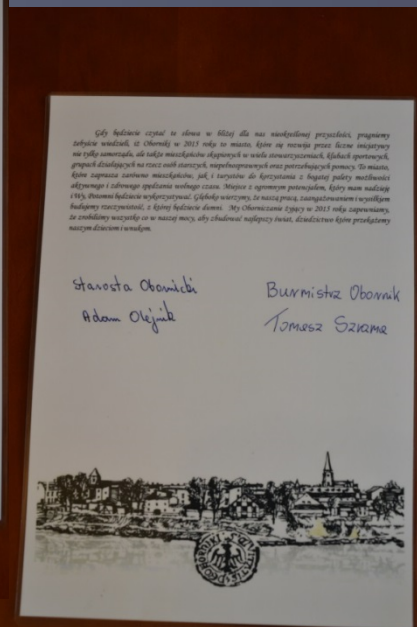 Gdy będziecie czytać te słowa w bliżej dla nas nieokreślonej przyszłości, pragniemy
żebyście wiedzieli, iż Oborniki w 2015 roku to miasto, które się rozwija przez liczne inicjatywy
nie tylko samorządu, ale także mieszkańców skupionych w wielu stowarzyszeniach, klubach sportowych,
grupach działających na rzecz osób starszych, niepełnosprawnych oraz potrzebujących pomocy. To miasto,
które zaprasza zarówno mieszkańców, jak i turystów do korzystania z bogatej palety możliwości
aktywnego i zdrowego spędzania wolnego czasu. Miejsce z ogromnym potencjałem, który mam nadzieję
i Wy, Potomni będziecie wykorzystywać. Głęboko wierzymy, że naszą pracą, zaangażowaniem i wysiłkiem
budujemy rzeczywistość, z której będziecie dumni. My Oborniczanie żyjący w 2015 roku zapewniamy,
że zrobiliśmy wszystko co w naszej mocy, aby zbudować najlepszy świat, dziedzictwo które przekażemy
naszym dzieciom i wnukom.
Starosta Obornicki
Adam Olejnik
Burmistrz Obornik
Tomasz Szrama